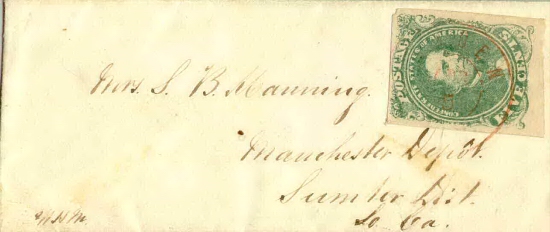 POSTAGE
CONFEDERATE STATES OF AMERICA
FIVE
Mrs. S. B. Manning.
Manchester Depot.
Sumter Dist.
So. Ca.